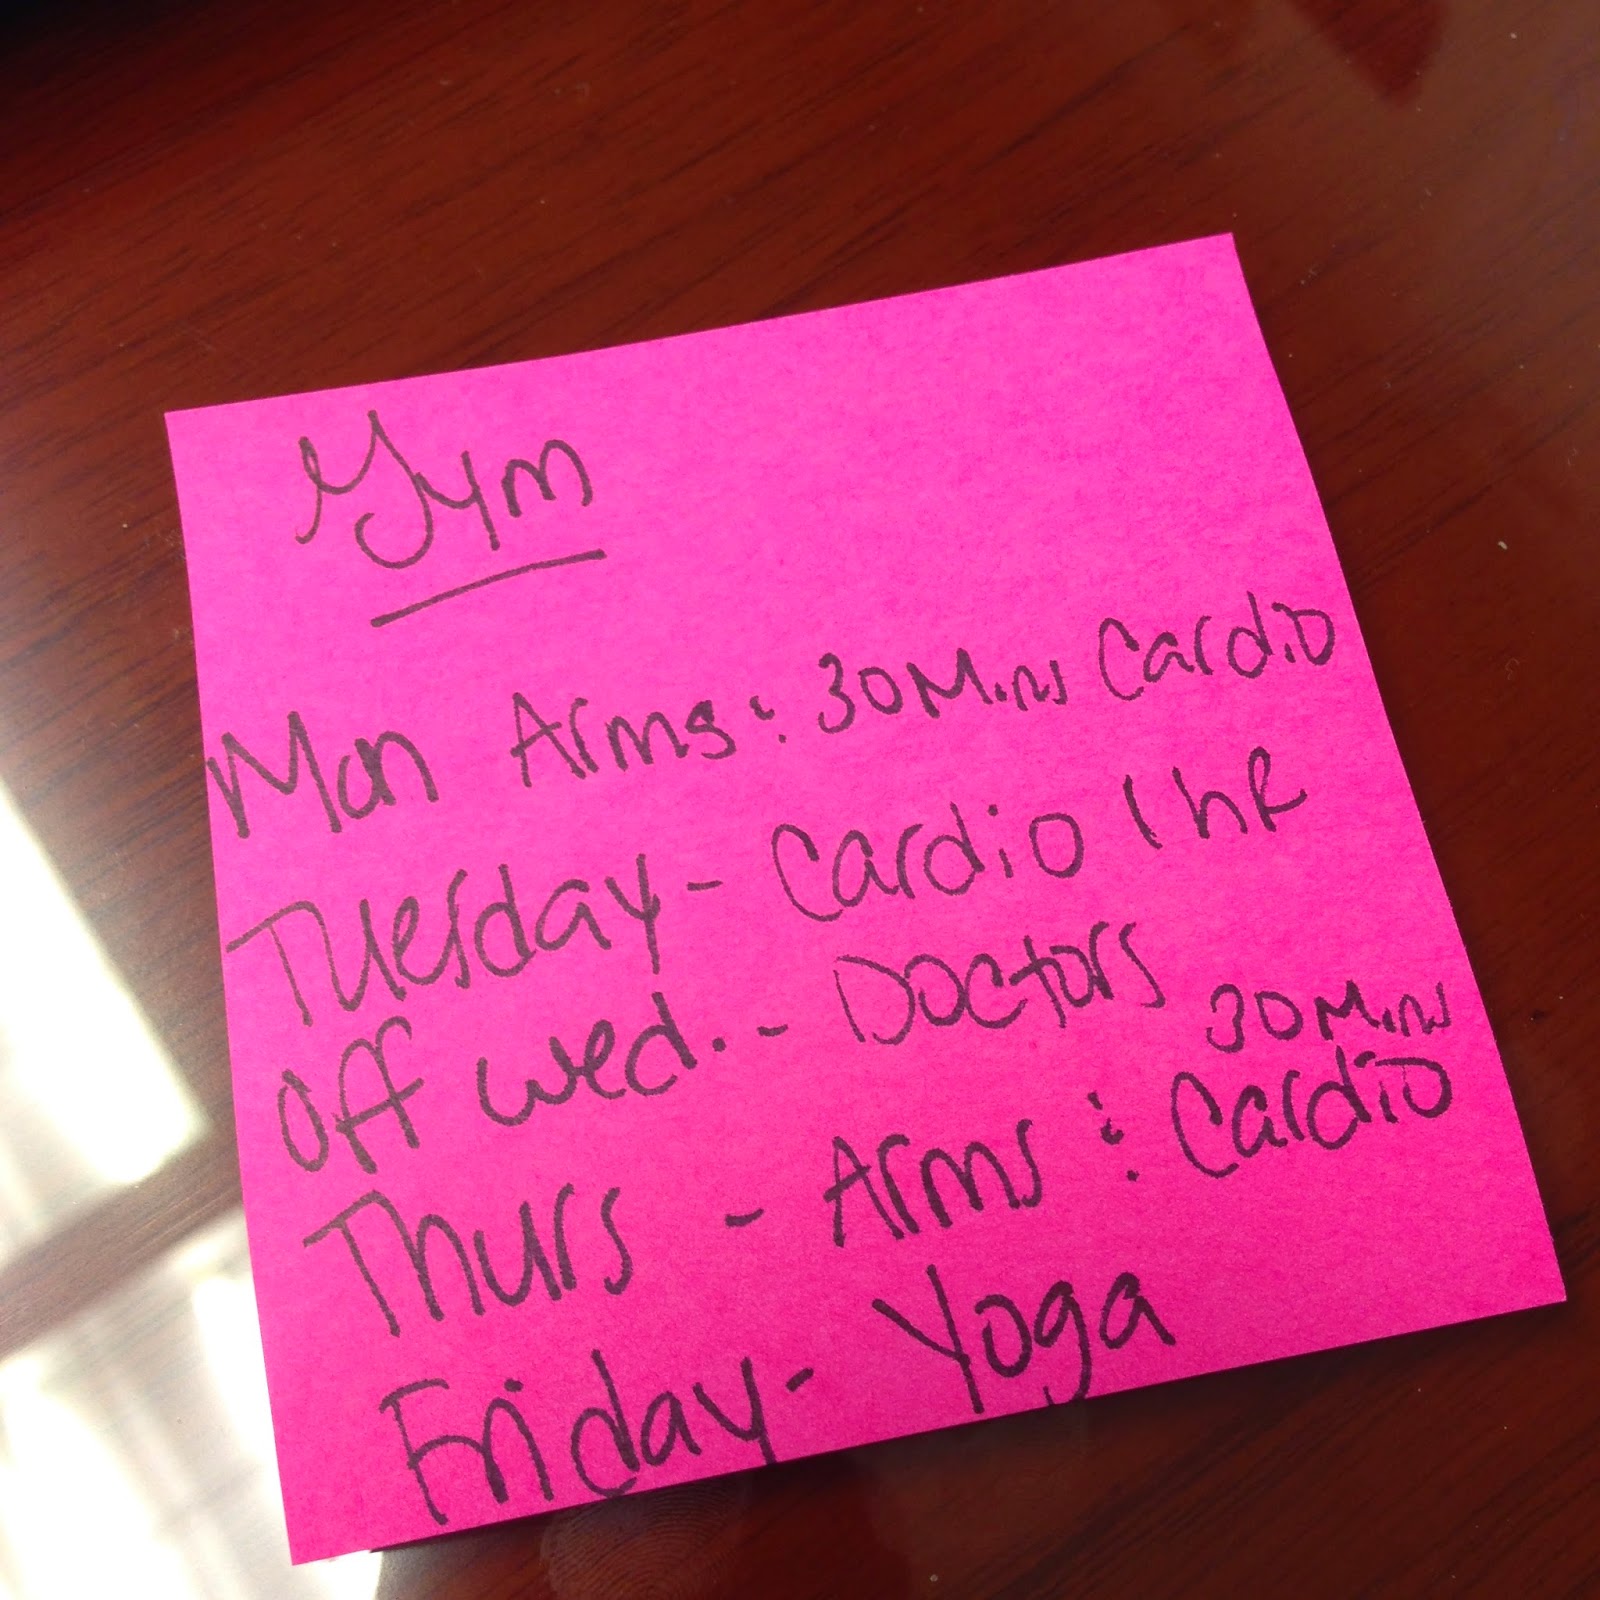 Gym
Mon Arms : 30 Mins Cardio
Tuesday - Cardio 1 hR
off wed. - Doctors
30 Mins
Thurs - Arms : Cardio
Friday - Yoga